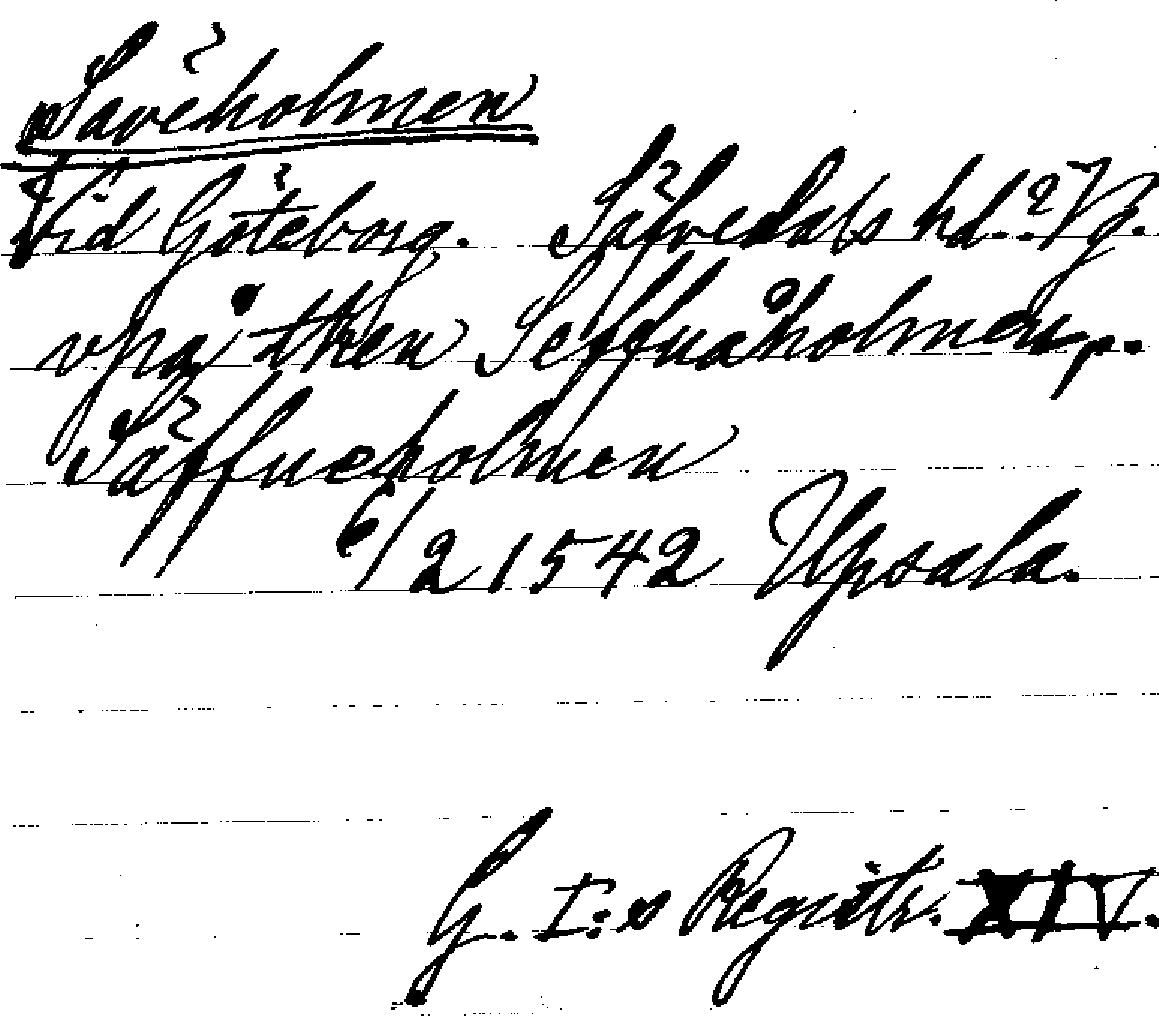 Säveholmen
Vid Göteborg. Säfvedals hd.? Vg.
vpå then Seffuaholmen,
Säffueholmen
6/2 1542 Upsala.
G. I:s Registr. XIV.